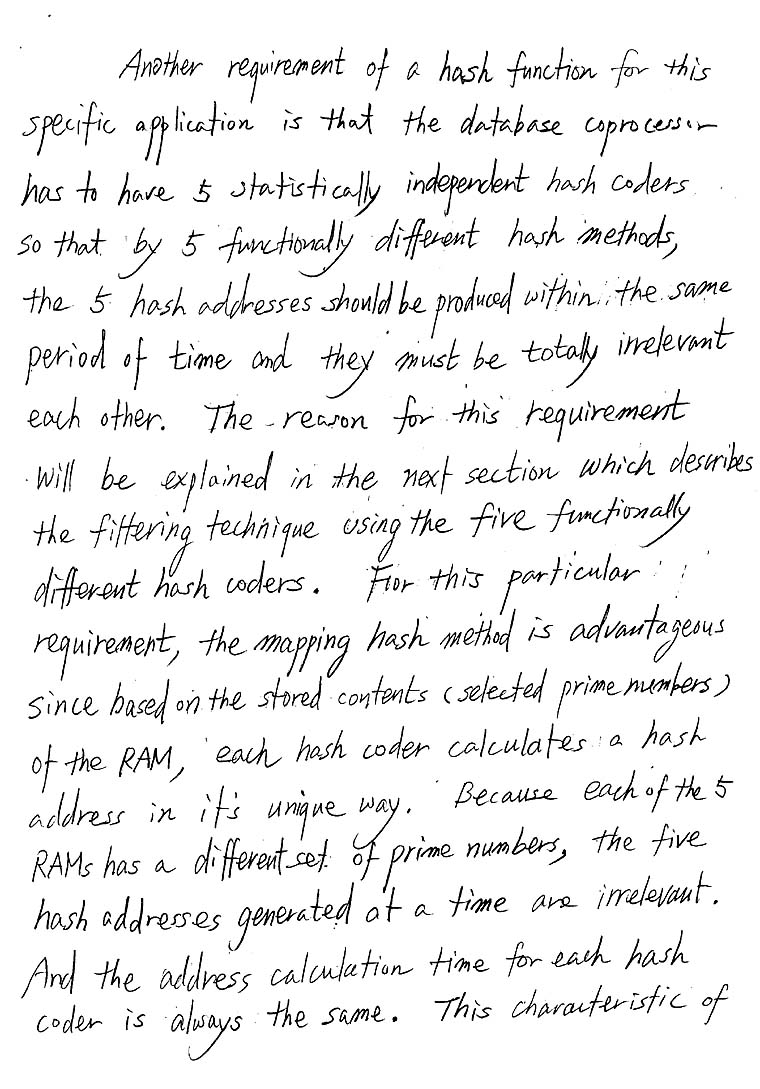 Another requirement of a hash function for this
specific application is that the database coprocessor
has to have 5 statistically independent hash coders
so that by 5 functionally different hash methods,
the 5 hash addresses should be produced within the same
period of time and they must be totally irrelevant
each other. The reason for this requirement
will be explained in the next section which describes
the filtering technique using the five functionally
different hash coders. For this particular
requirement, the mapping hash method is advantageous
since based on the stored contents (selected prime numbers)
of the RAM, each hash coder calculates a hash
address in it's unique way. Because each of the 5
RAMs has a different set of prime numbers, the five
hash addresses generated at a time are irrelevant.
And the address calculation time for each hash
coder is always the same. This characteristic of